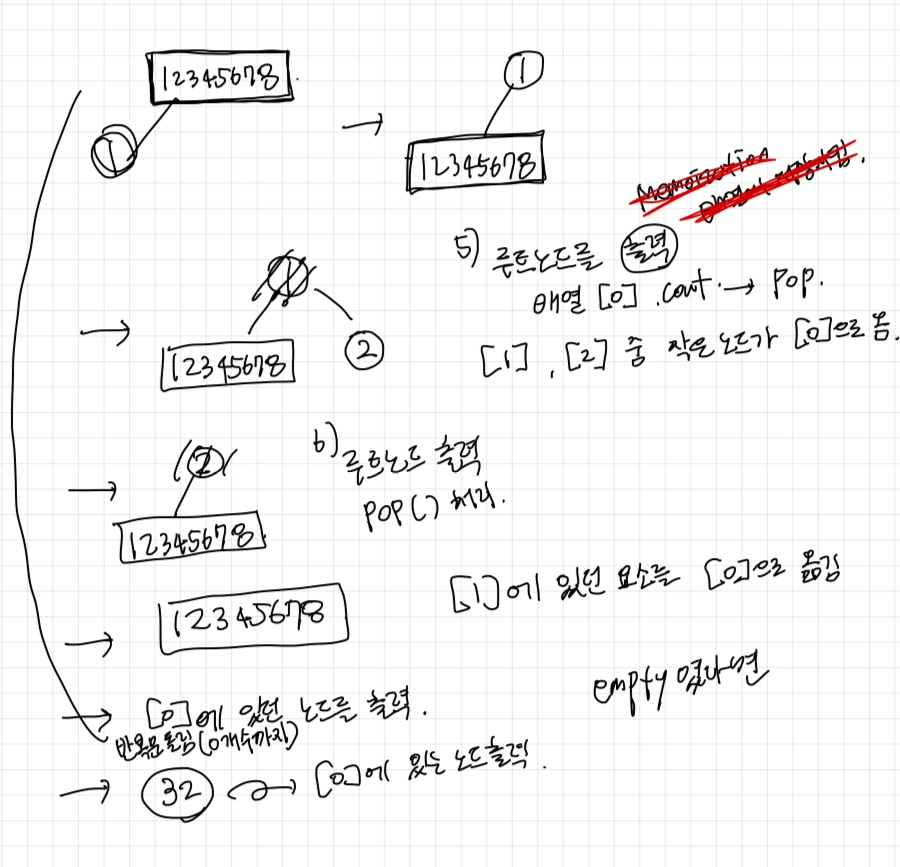 12345678
①
→
①
12345678
5) 루트노드를 출력
배열 [0] .cout. → pop.
[1], [2] 중 작은 노드가 [0]으로 옴.
→
12345678
②
6) 루트노드 출력
pop() 처리.
→
②
12345678
[1]에 있던 요소를 [0]으로 옮김
→
12345678
empty 였다면
→ [0]에 있던 노드를 출력.
반복문돌림(0개수까지)
→ 32 → [0]에 있는 노드출력.